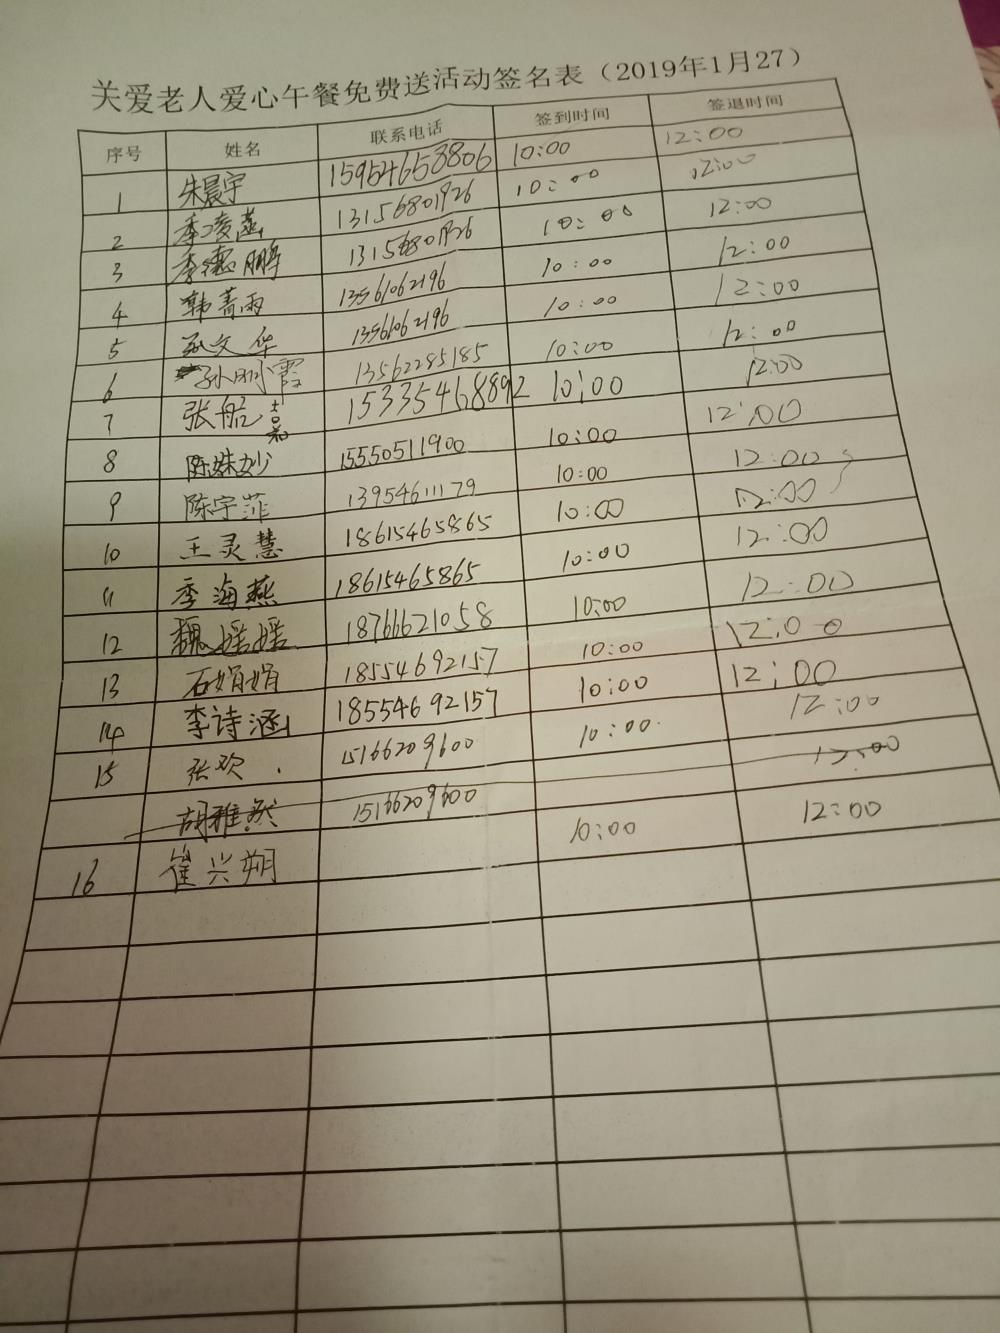 关爱老人爱心午餐免费送活动签名表（2019年1月27）
序号 姓名 联系电话 签到时间 签退时间
1 朱晨宇 15954653806 10:00 12:00
2 李凌燕 13156801926 10:00 12:00
3 李德鹏 13156801926 10:00 12:00
4 韩菁雨 13561062196 10:00 12:00
5 孙文华 13561062196 10:00 12:00
6 孙丽霞 13562285185 10:00 12:00
7 张航嘉 15335468892 10:00 12:00
8 陈姝妙 15550511900 10:00 12:00
9 陈宇菲 13954611179 10:00 12:00
10 王灵慧 18615465865 10:00 12:00
11 季海燕 18615465865 10:00 12:00
12 魏媛媛 18766621058 10:00 12:00
13 石娟娟 18554692157 10:00 12:00
14 李诗涵 18554692157 10:00 12:00
15 张欢 15166209600 10:00 12:00
胡雅然 15166209600 12:00
16 崔兴朔 10:00 12:00